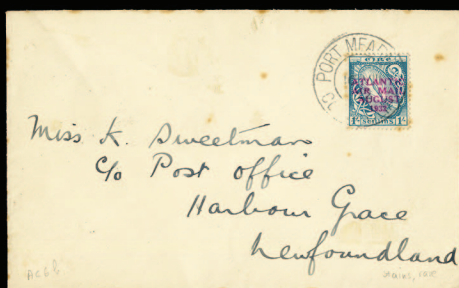 PORT MEA
CO
ATLANTIC
AIR MAIL
AUGUST
1932
Miss K. Sweetman
c/o Post office
Harbour Grace
Newfoundland